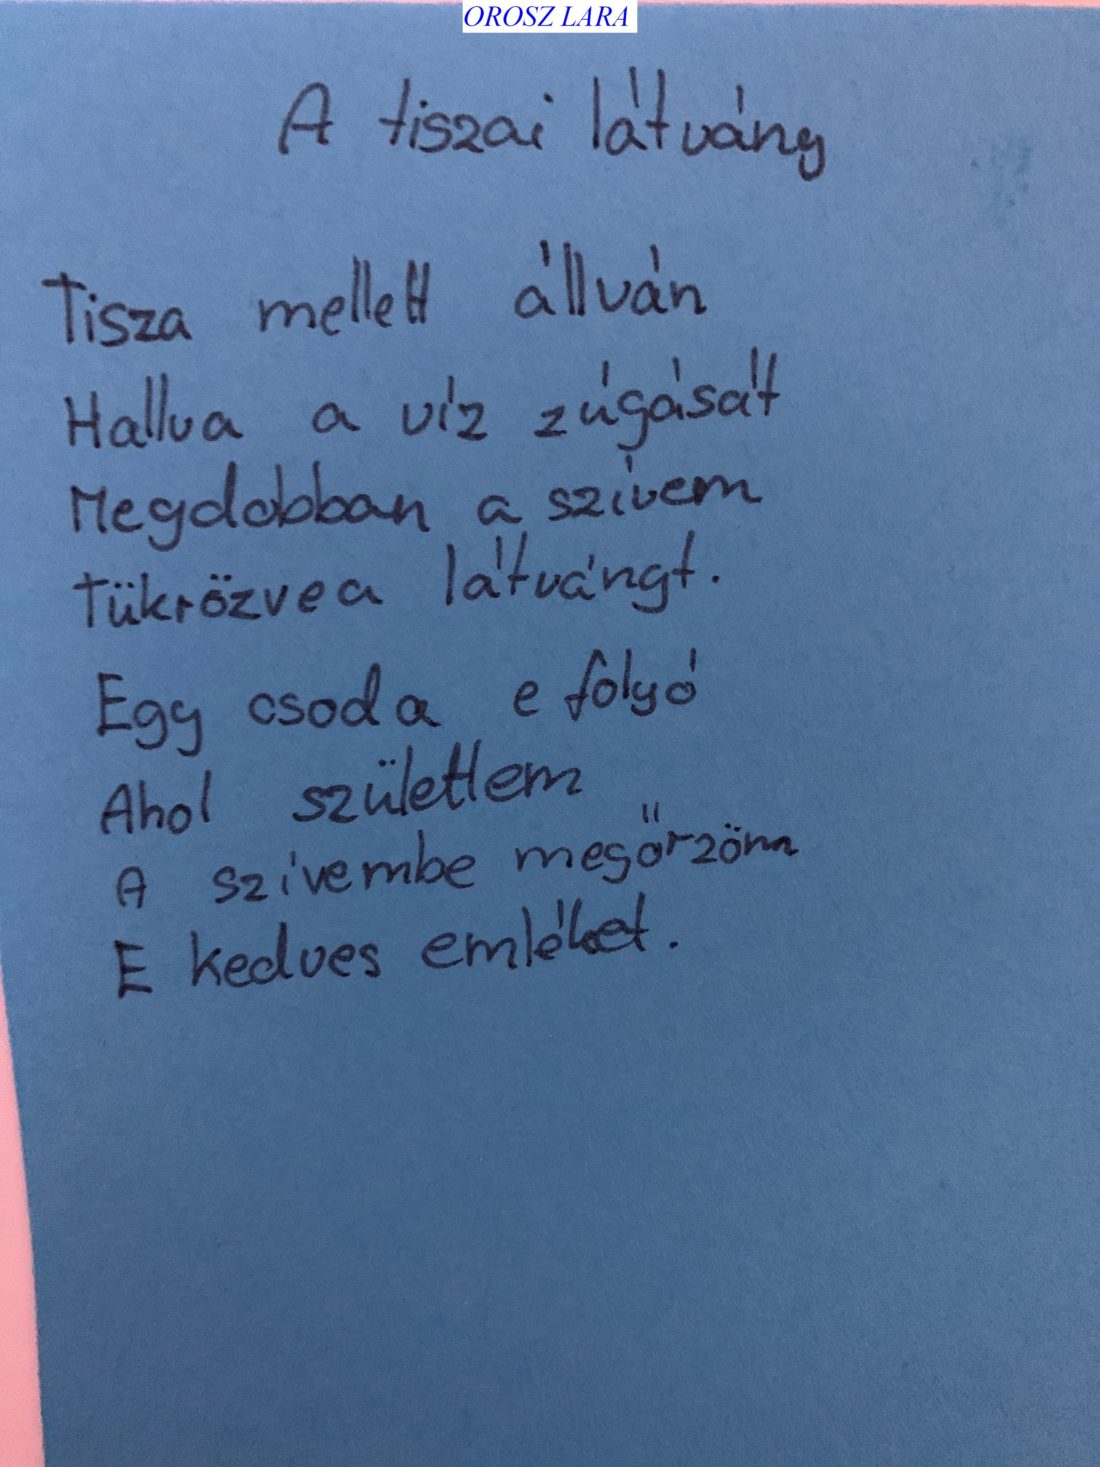 OROSZ LARA
A tiszai látvány
Tisza mellett állván
Hallva a víz zúgását
Megdobban a szívem
Tükrözve a látványt.
Egy csoda e folyó
Ahol születtem
A szívembe megőrzöm
E kedves emléket.